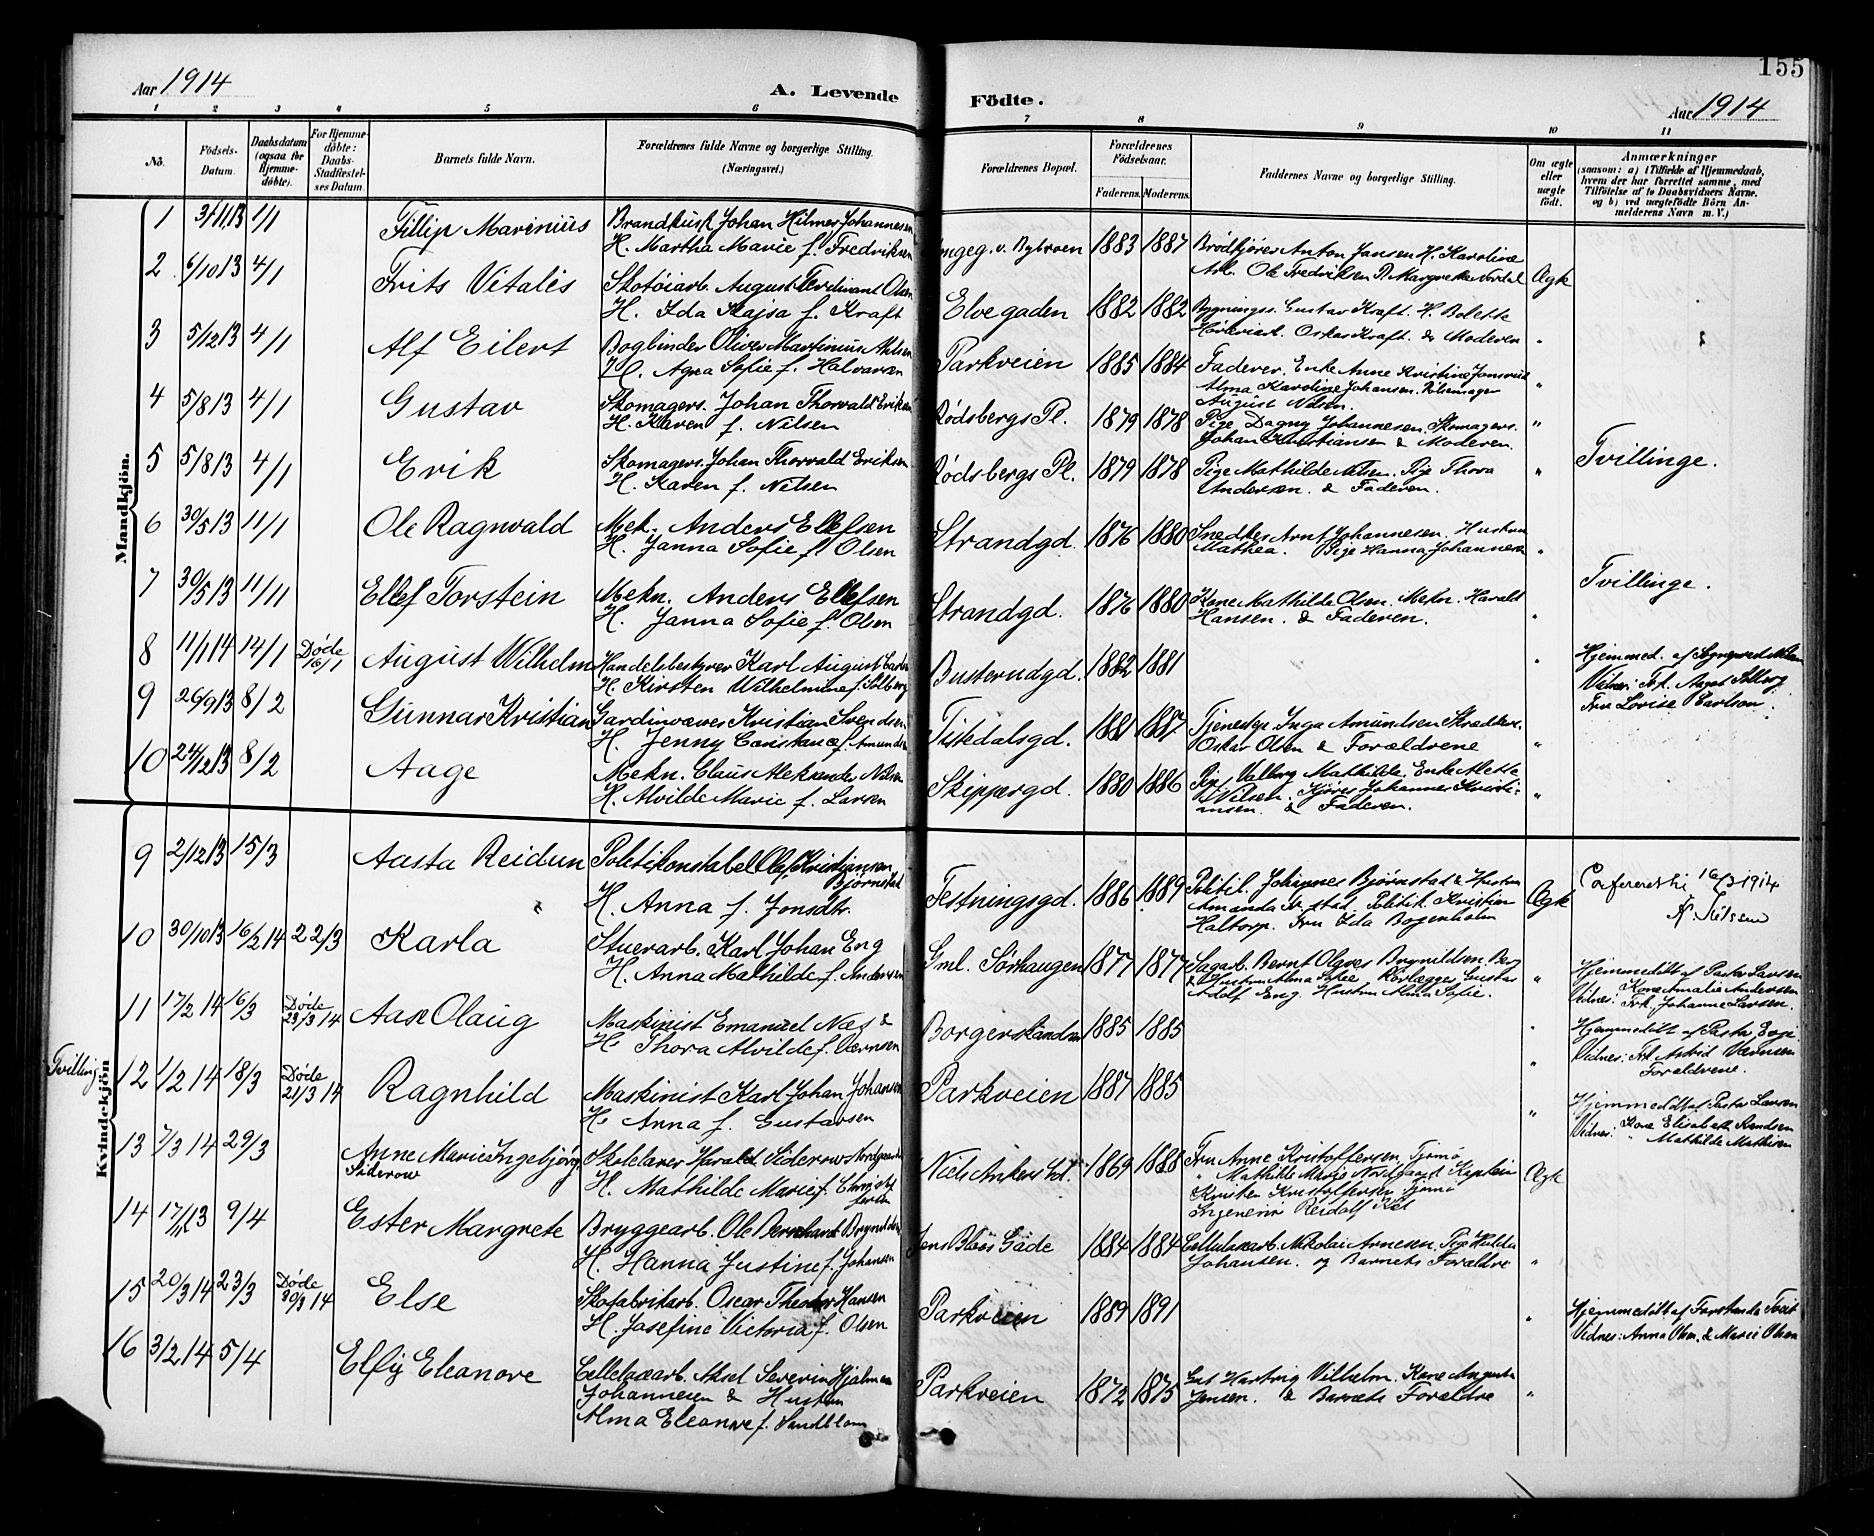 155
Aar 1914
A. Levende
Födte.
Aar 1914
1 2 3 4 5 6 7 8 9 10 11
No.
Födsels-Datum.
Daabsdatum (ogsaa for Hjemmedöbte).
For Hjemmedöbte: Daabs-Stadfæstelses Datum.
Barnets fulde Navn.
Forældrenes fulde Navne og borgerlige Stilling. (Næringsvei.)
Forældrenes Bopæl.
Forældrenes Födselsaar.
Faderens. Moderens.
Faddernes Navne og borgerlige Stilling.
Om ægte eller uægte födt.
Anmærkninger
(saasom: a) i Tilfælde af Hjemmedaab, hvem der har forrettet samme, med Tilföielse af to Daabsvidners Navne, og b) ved uægtefödte Börn Anmelderens Navn m. V.)
Mandkjön.
1 4/1 Fillip Marinius Brandkusk Johan Hilmer Johannesen
H. Martha Marie f. Fredriksen v. Bybroen 1883 1887 Anton Jansen H. Karoline
Ole Fredriksen P. Margrethe Ægte
2 6/10 13 4/1 Frits Vitalis Skotøiarb. August Ferdinant Olsen
H. Ida Kajsa f. Kraft Elvegaden 1882 1882 Bygningss. Gustav Kraft. H. Bolette
Oskar Kraft. & Moderen "
3 5/12 13 4/1 Alf Eilert Bogbinder Oliver Martinius
H. Agna Sofie f. Halvorsen Parkveien 1885 1884 Faderen, Enke Anne Kristine
Alma Karoline Johansen.
August Nilsen. "
4 5/8 13 4/1 Gustav Skomagers. Johan Thorvald Eriksen
H. Karen f. Nilsen Rødsbergs Pl. 1879 1878 Pige Dagny Johannesen. Skomagers.
Johan Kristiansen & Moderen. "
5 5/8 13 4/1 Erik Skomagers. Johan Thorvald Eriksen
H. Karen f. Nilsen Rødsbergs Pl. 1879 1878 Pige Mathilde Nilsen. Pige Thora
Andersen. & Faderen. " Tvillinge.
6 30/5 13 11/1 Ole Ragnvald Mek. Anders Ellefsen
H. Janna Sofie f. Olsen Strandgd. 1876 1880 Snedker Arnt Johannesen. Hustru
Mathea. Pige Hanna Johannesen "
7 30/5 13 11/11 Ellef Torstein Mekn. Anders Ellefsen
H. Janna Sofie f. Olsen Strandgd. 1876 1880 Kone Mathilde Olsen. Mekn. Harald
Hansen. & Faderen. " Tvillinge.
8 11/1 14 14/1 Døde 16/1 August Wilhelm Handelsbestyrer Karl August
H. Kirsten Wilhelmine f. Solberg 1882 1881 " Hjemmed. af
Vidner: Frk. Aagot Solberg
Fru Lovise Karlson.
9 26/9 13 8/2 Gunnar Kristian Gardinvæver Kristian Svendsen
H. Jenny Constance f. Amundsen Tistedalsgd. 1881 1887 Tjenestpe. Inga Amundsen
Oskar Olsen & Forældrene "
10 24/12 13 8/2 Aage Mekn. Claus Aleksander Nilsen
H. Alvilde Marie f. Larsen Skippergd. 1880 1886 Pige Valborg Mathilde. Enke Alette
Nilsen. Kjører Johannes Kristiansen. & Faderen. "
Kvindekjön
9 2/12 13 15/3 Aasta Reidun Politikonstabel Olaf Kristiansen
Bjørnstad
H. Anna f. Jonsdtr. Festningsgd. 1886 1889 Politik. Johannes Bjørnstad & Hustru
Amanda Politik. Kristian
Haltorp. Fru Ida Bogenholm Ægte Confereret til 16/3 1914
10 30/10 13 16/2 14 22/3 Karla Stuerarb. Karl Johan Eng
H. Anna Mathilde f. Andersen Gml. Sørhaugen 1877 1877 Sagarb. Bernt Olaves Brynildsen Berg
& Hustru Alma Sofie Rørlægger Gustav
Adolf Eng. Hustru Alma Sofie. " Hjemmedøbt af Pastor Larsen
Vidnes: Kone Amalie Andersen
Frk. Johanne Larsen.
11 17/2 14 16/3 Døde 23/3 14 Aase Olaug Maskinist Emanuel Næs &
H. Thora Alvilde f. Værnsen 1885 1885 " Hjemmedøbt af Pastor
Vidnes: Frk. Astrid Værnsen
Forældrene.
Tvilling 12 1/2 14 18/3 Døde 21/3 14 Ragnhild Maskinist Karl Johan Johansen
H. Anna f. Gustavsen Parkveien 1887 1885 " Hjemmedøbt Pastor Larsen
Vidnes: Kone Elisabeth Knudsen
" Mathilde Mathisen
13 7/3 14 29/3 Anne Marie Ingebjørg
Siderow Skolelærer Harald Siderow Nordgaarden
H. Mathilde Marie f. Niels Ankers Gd. 1869 1888 Fru Anne Kristoffersen, Tjømø
" Mathilde Marie Nordgaard. Kaptein
Kristen Kristoffersen Tjømø
Ingeniør Reidolf Ægte
14 9/4 Ester Margrete Bryggearb. Ole Bernhard Brynildsen
H. Hanna Justine f. Johansen Jens Bloos Gade 1884 1884 Cellulosearb. Nikolai Arnesen. Pige Hulda
Johansen. og Barnets Forældre "
15 20/3 14 23/3 Døde 30/3 14 Else Skofabrikarb. Oscar Theodor Hansen
H. Josefine Victoria f. Olsen Parkveien 1889 1891 " Hjemmedøbt af
Vidnes: Anna Olsen. & Marie Olsen
16 3/2 14 5/4 Elfy Eleanore Cellulosearb. Aksel Severin Hjalmar
Johannesen & Hustru
Alma Eleanore f. Sandblom Parkveien 1872 1875 Hartvig Vilhelm. Kone Augusta
Jensen. & Barnets Forældre "